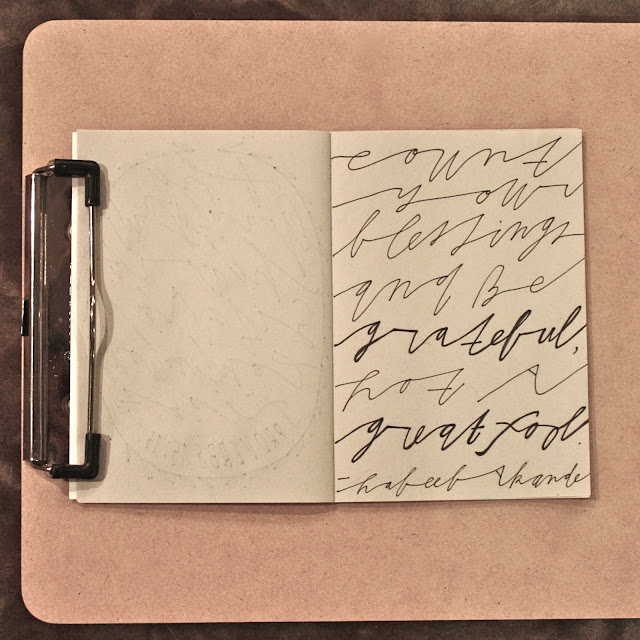 count
your
blessings
and Be
grateful,
not A
great fool.
- habeeb Akande